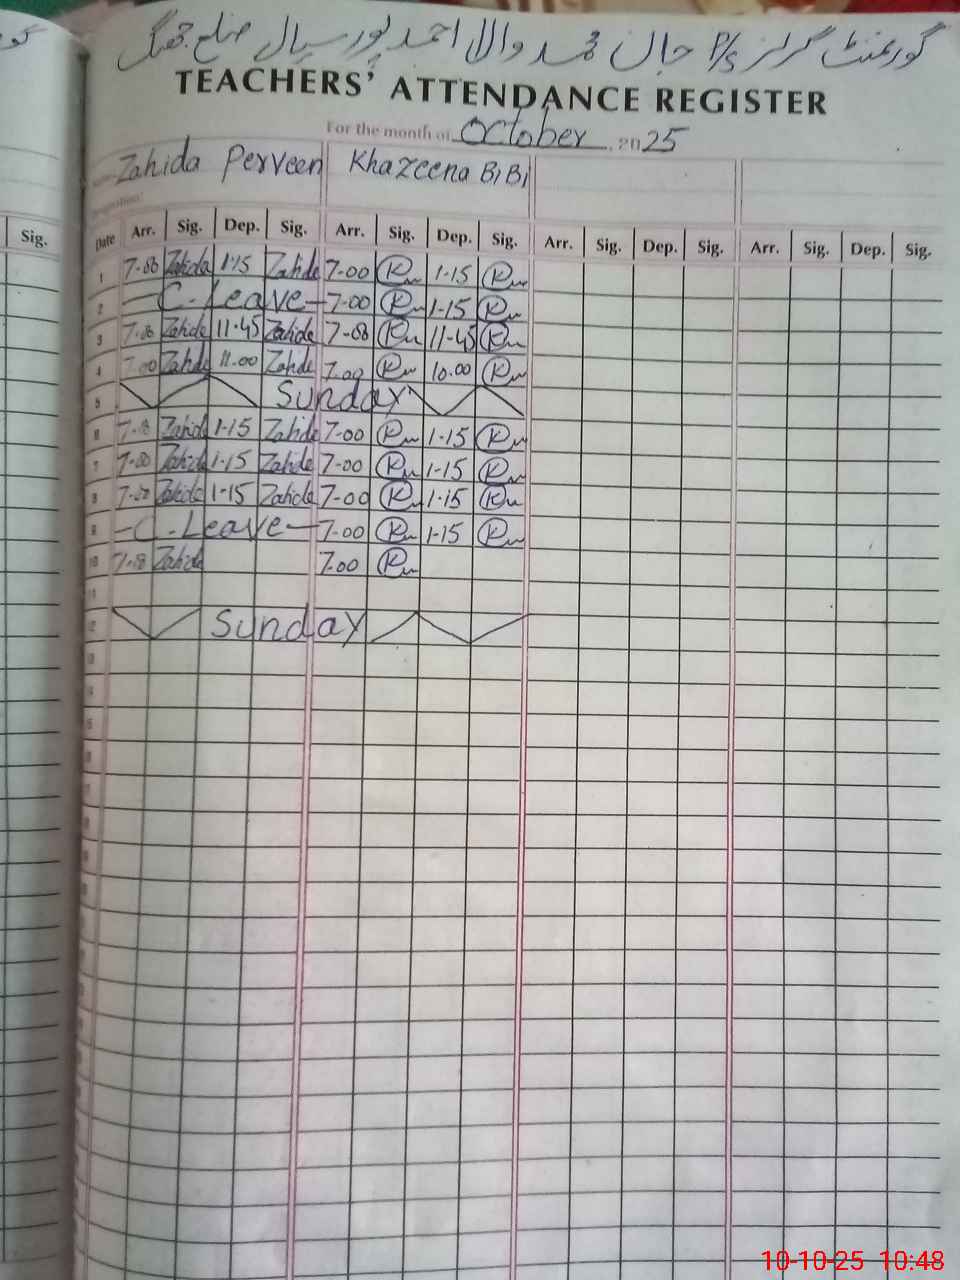 گورنمنٹ گرلز P/S جان محمد والا احمد پور سیال ضلع جھنگ
TEACHERS' ATTENDANCE REGISTER
For the month of October 2025
Zahida Perveen Khazeena BiBi
Sig.
Date Arr. Sig. Dep. Sig. Arr. Sig. Dep. Sig. Arr. Sig. Dep. Sig. Arr. Sig. Dep. Sig.
1 7-00 Zahida 1-15 Zahida 7-00 1-15
2 C. Leave 7-00 1-15
3 7-00 Zahida 11-45 Zahida 7-00 11-45
4 7.00 Zahida 11.00 Zahida 7.00 10.00
5 Sunday
6 Zahida 1-15 Zahida 7-00 1-15
7 7-00 Zahida 1-15 Zahida 7-00 1-15
8 7-00 Zahida 1-15 Zahida 7-00 1-15
9 C. Leave 7-00 1-15
10 Zahida 7.00
11
12 Sunday
13
14
15
10-10-25 10:48